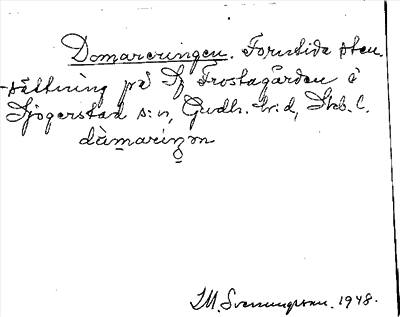 Domareringen. Forntida sten-
-sättning på Frostagården å
Sjögerstad s:n, Gudh. h:d, Skb. l.
dåmariŋən
I.M. Svenningsson. 1948.